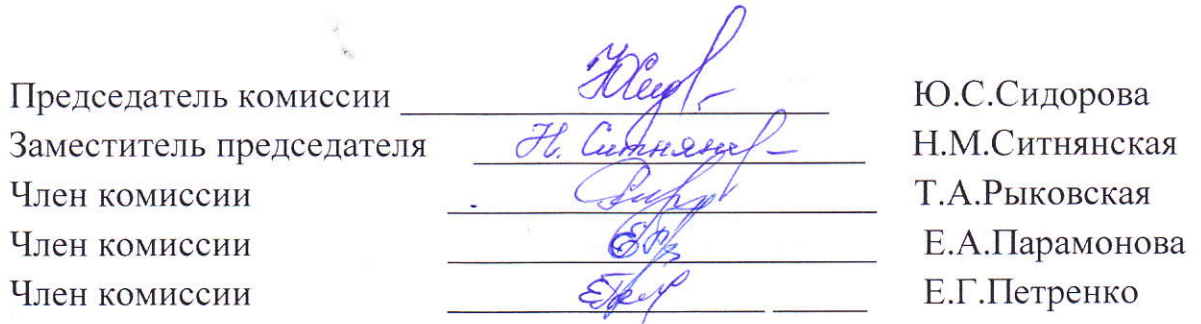 Председатель комиссии Ю.С.Сидорова
Заместитель председателя Н. Ситнянс Н.М.Ситнянская
Член комиссии Т.А.Рыковская
Член комиссии Е.А.Парамонова
Член комиссии Е.Г.Петренко